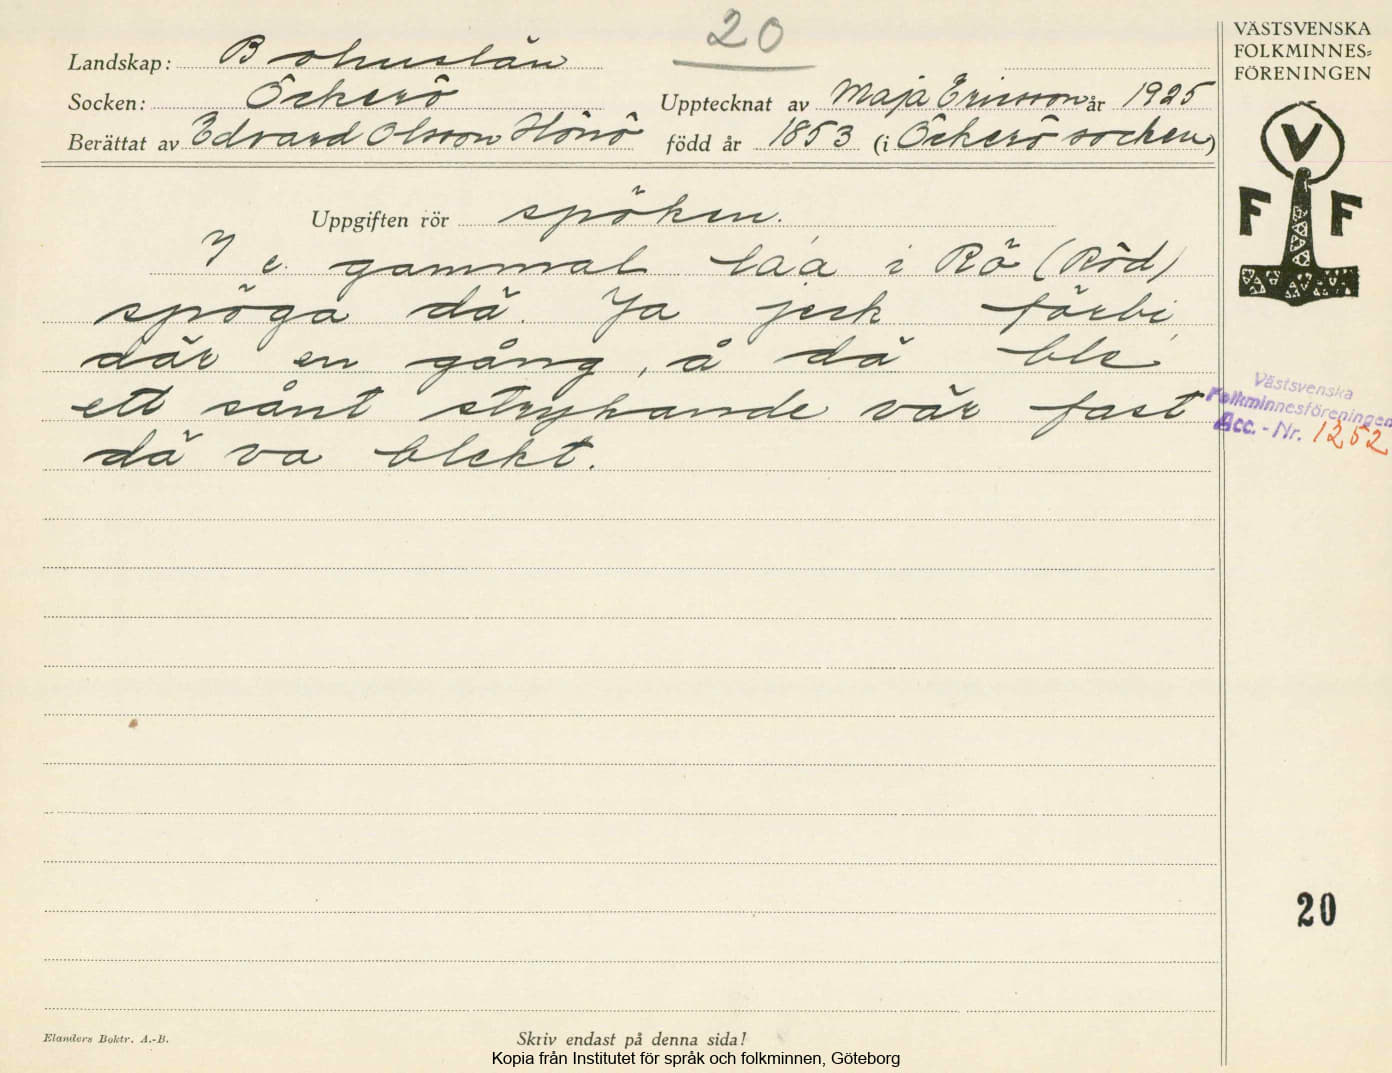 20
Landskap: Bohuslän
Socken: Öckerö
Upptecknat av Maja Ericsson år 1925
Berättat av Edvard Olsson Hönö född år 1853 (i Öckerö socken)
VÄSTSVENSKA
FOLKMINNES-
FÖRENINGEN
V
F F
Uppgiften rör spöken.
I e. gammal laa i Rö (Röd)
spöga dä. Ja jeck förbi
där en gång, å dä ble
ett sånt strykande vär fast
dä va blekt.
Västsvenska
Folkminnesföreningen
Acc. - Nr. 1252
20
Elanders Boktr. A.-B.
Skriv endast på denna sida!
Kopia från Institutet för språk och folkminnen, Göteborg